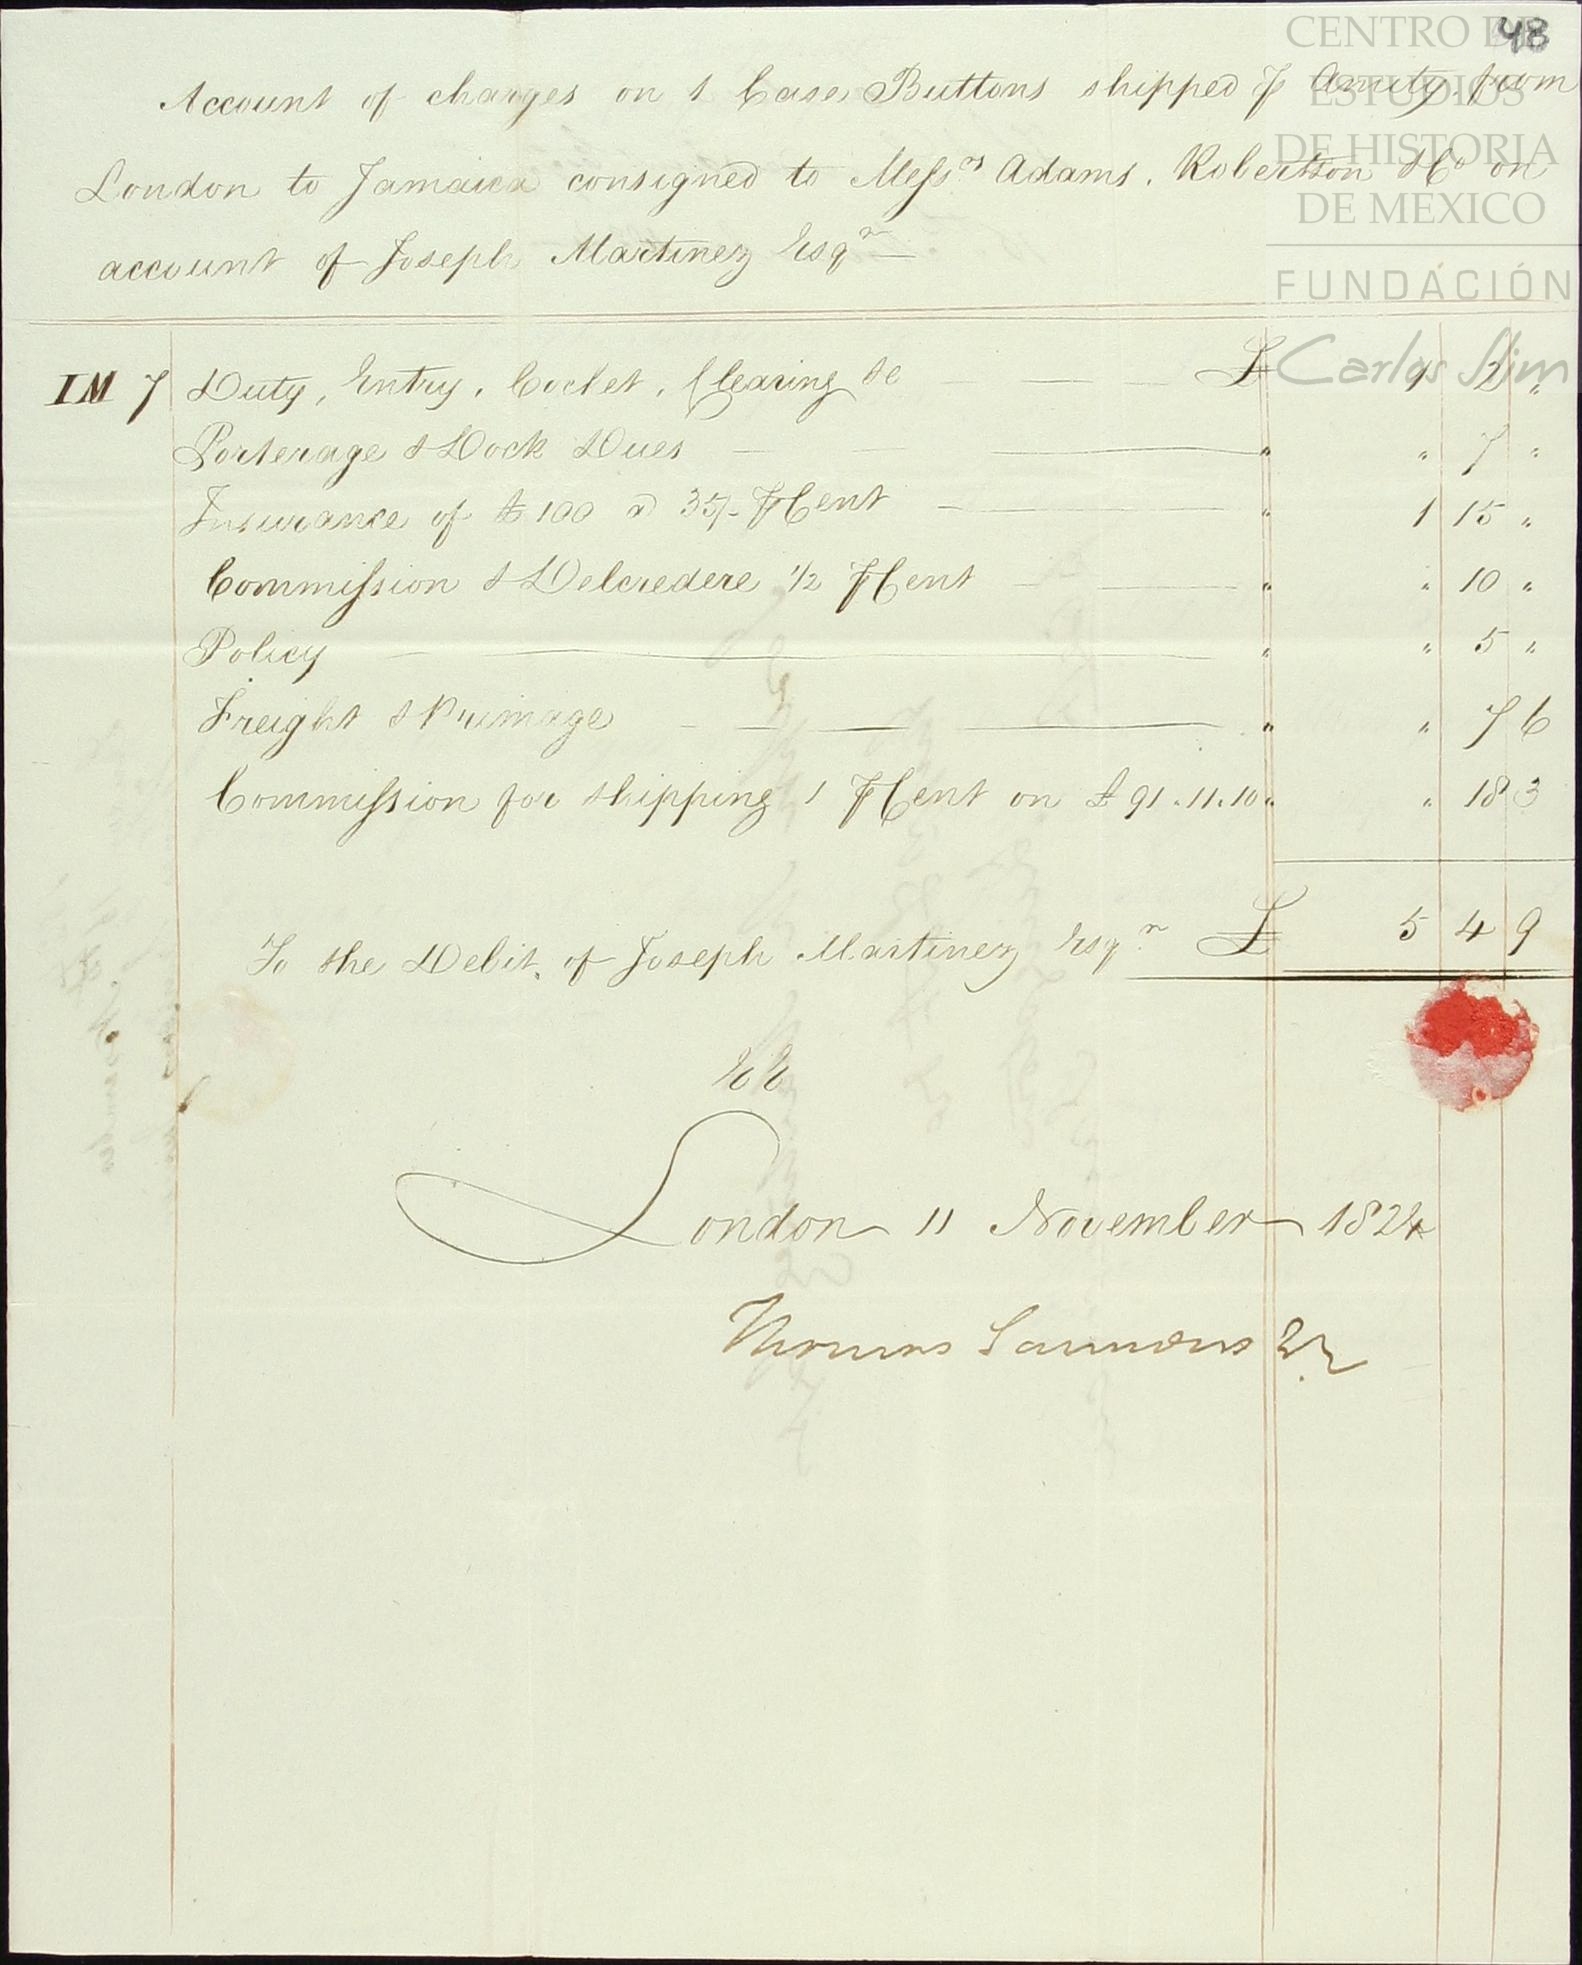 48
CENTRO DE
ESTUDIOS
DE HISTORIA
DE MEXICO
FUNDACIÓN
Carlos Slim
Account of charges on 1 Case Buttons shipped ⅌ Amity from
London to Jamaica consigned to Messrs Adams, Robertson &Co on
account of Joseph Martinez Esqr —
IM 7 Duty, Entry, Cocket, Clearing &c — £ 1 2 "
Porterage & Dock Dues — " " 7 "
Insurance of £100 @ 35/- ⅌Cent — " 1 15 "
Commission & Delcredere 1/2 ⅌Cent — " " 10 "
Policy — " " 5 "
Freight & Primage — " " 7 6
Commission for shipping 1 ⅌Cent on £91.11.10 " " 18 3
To the Debit of Joseph Martinez Esqr £ 5 4 9
EE
London 11 November 1824
Thomas